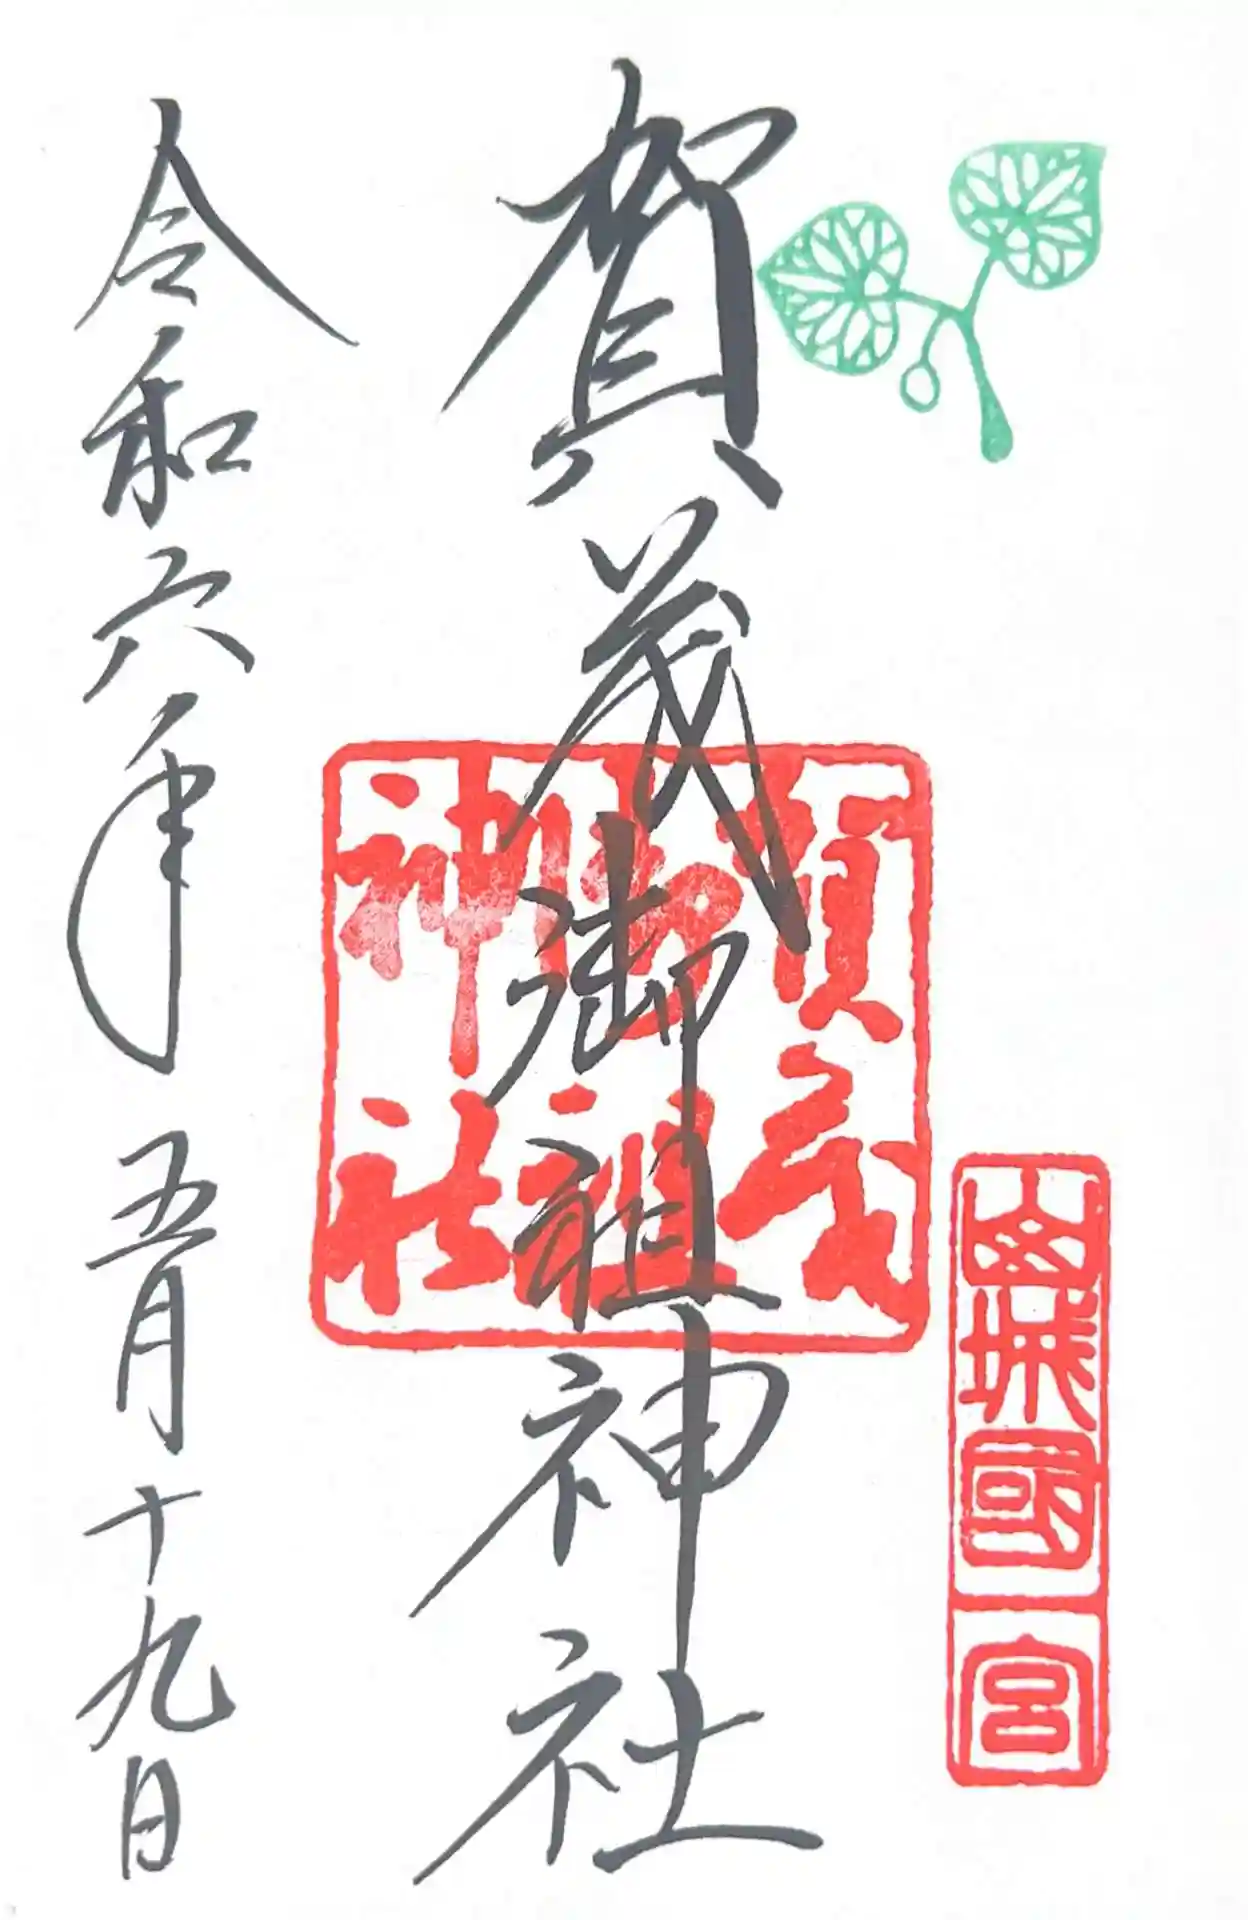 山城國一宮
賀茂御祖神社
賀茂
御祖
神社
令和六年五月十九日